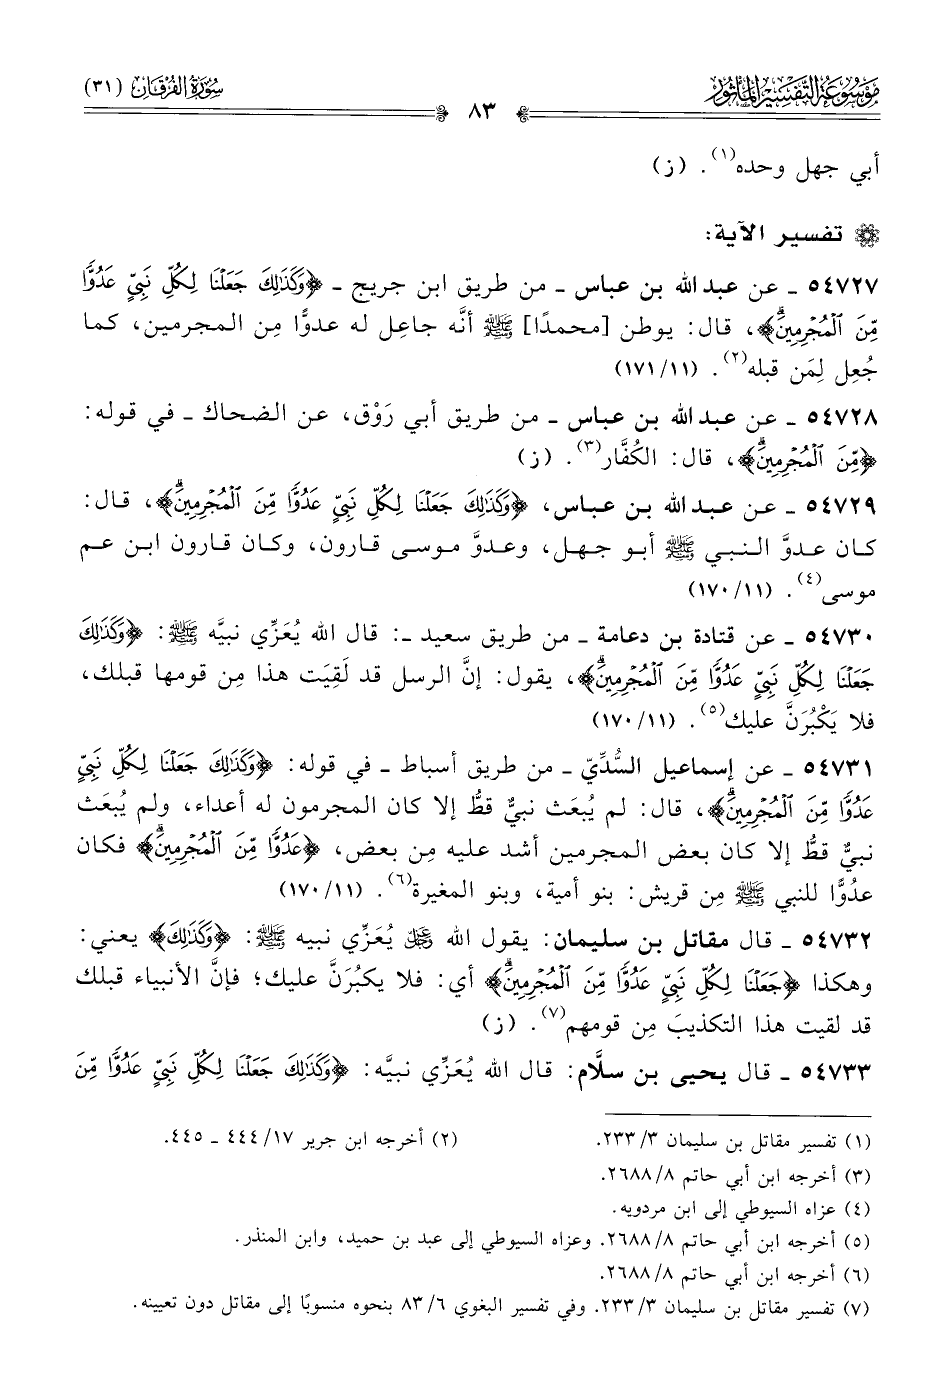 مَوْسُوعَة التَّفْسِير المَأثُور
سُورَةُ الفُرْقَان (٣١)
٨٣
أبي جهل وحده(١). (ز)
تفسير الآية:
٥٤٧٢٧ ـ عن عبد الله بن عباس ـ من طريق ابن جريج ـ ﴿وَكَذَٰلِكَ جَعَلْنَا لِكُلِّ نَبِيٍّ عَدُوًّا
مِّنَ ٱلْمُجْرِمِينَۗ﴾، قال: يوطن [محمدًا] ﷺ أنَّه جاعِل له عدوًّا مِن المجرمين، كما
جُعِل لِمَن قبله(٢). (١٧١/١١)
٥٤٧٢٨ ـ عن عبد الله بن عباس ـ من طريق أبي رَوْق، عن الضحاك ـ في قوله:
﴿مِّنَ ٱلْمُجْرِمِينَۗ﴾، قال: الكُفَّار(٣). (ز)
٥٤٧٢٩ ـ عن عبد الله بن عباس، ﴿وَكَذَٰلِكَ جَعَلْنَا لِكُلِّ نَبِيٍّ عَدُوًّا مِّنَ ٱلْمُجْرِمِينَۗ﴾، قال:
كان عدوَّ النبي ﷺ أبو جهل، وعدوَّ موسى قارون، وكان قارون ابن عم
موسى(٤). (١٧٠/١١)
٥٤٧٣٠ ـ عن قتادة بن دعامة ـ من طريق سعيد ـ: قال الله يُعَزِّي نبيَّه ﷺ: ﴿وَكَذَٰلِكَ
جَعَلْنَا لِكُلِّ نَبِيٍّ عَدُوًّا مِّنَ ٱلْمُجْرِمِينَۗ﴾، يقول: إنَّ الرسل قد لَقِيَت هذا مِن قومها قبلك،
فلا يَكْبُرَنَّ عليك(٥). (١٧٠/١١)
٥٤٧٣١ ـ عن إسماعيل السُّدِّيّ ـ من طريق أسباط ـ في قوله: ﴿وَكَذَٰلِكَ جَعَلْنَا لِكُلِّ نَبِيٍّ
عَدُوًّا مِّنَ ٱلْمُجْرِمِينَۗ﴾، قال: لم يُبعَث نبيٌّ قطُّ إلا كان المجرمون له أعداء، ولم يُبعَث
نبيٌّ قطُّ إلا كان بعض المجرمين أشد عليه مِن بعض، ﴿عَدُوًّا مِّنَ ٱلْمُجْرِمِينَۗ﴾ فكان
عدُوًّا للنبي ﷺ مِن قريش: بنو أمية، وبنو المغيرة(٦). (١٧٠/١١)
٥٤٧٣٢ ـ قال مقاتل بن سليمان: يقول الله ﷿ يُعَزِّي نبيه ﷺ: ﴿وَكَذَٰلِكَ﴾ يعني:
وهكذا ﴿جَعَلْنَا لِكُلِّ نَبِيٍّ عَدُوًّا مِّنَ ٱلْمُجْرِمِينَۗ﴾ أي: فلا يكبُرَنَّ عليك؛ فإنَّ الأنبياء قبلك
قد لقيت هذا التكذيبَ مِن قومهم(٧). (ز)
٥٤٧٣٣ ـ قال يحيى بن سلَّام: قال الله يُعَزِّي نبيَّه: ﴿وَكَذَٰلِكَ جَعَلْنَا لِكُلِّ نَبِيٍّ عَدُوًّا مِّنَ
(١) تفسير مقاتل بن سليمان ٢٣٣/٣. (٢) أخرجه ابن جرير ٤٤٤/١٧ ـ ٤٤٥.
(٣) أخرجه ابن أبي حاتم ٢٦٨٨/٨.
(٤) عزاه السيوطي إلى ابن مردويه.
(٥) أخرجه ابن أبي حاتم ٢٦٨٨/٨. وعزاه السيوطي إلى عبد بن حميد، وابن المنذر.
(٦) أخرجه ابن أبي حاتم ٢٦٨٨/٨.
(٧) تفسير مقاتل بن سليمان ٢٣٣/٣. وفي تفسير البغوي ٨٣/٦ بنحوه منسوبًا إلى مقاتل دون تعيينه.